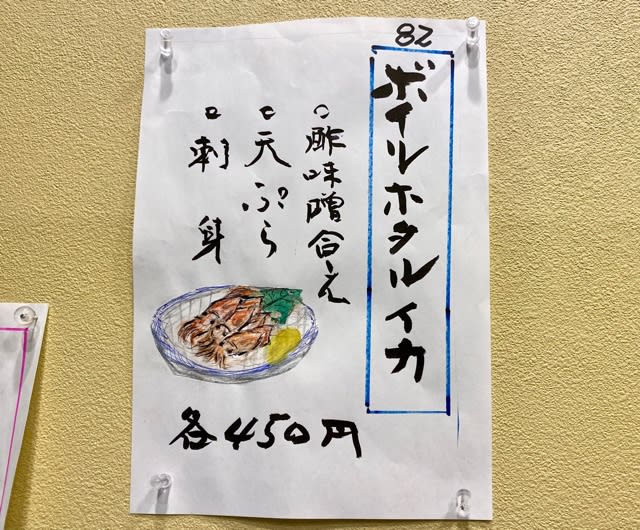 82
ボイルホタルイカ
○酢味噌合え
○天ぷら
○刺身
各450円